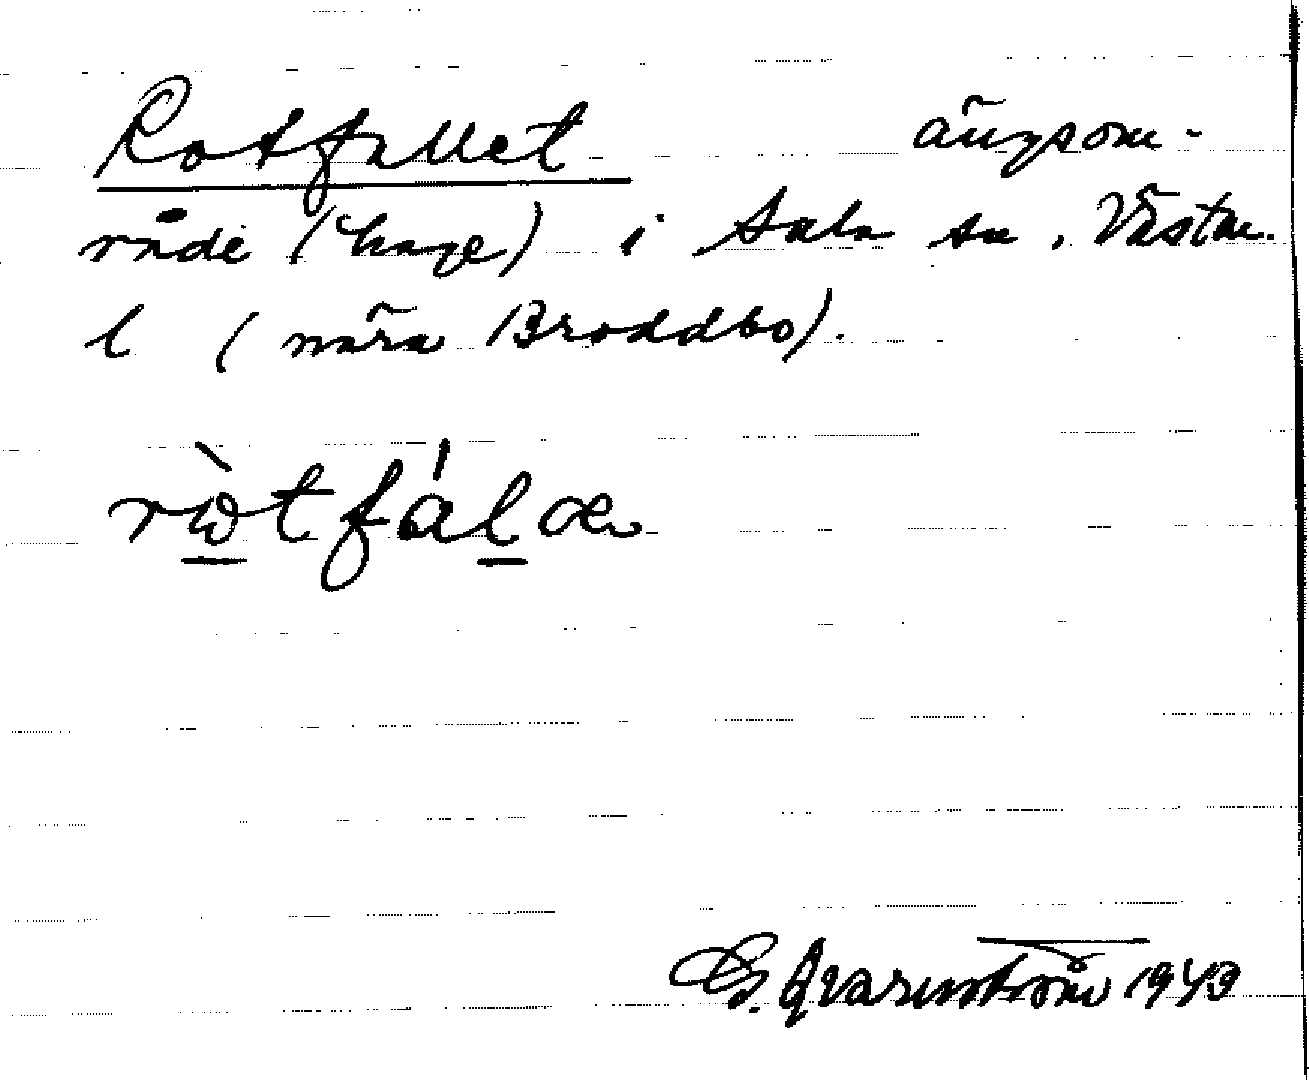 Rotfallet ängsom-
råde (hage) i Sala sn, Västm.
l (nära Broddbo).
ròtfálæ
G. Qvarnström 1943